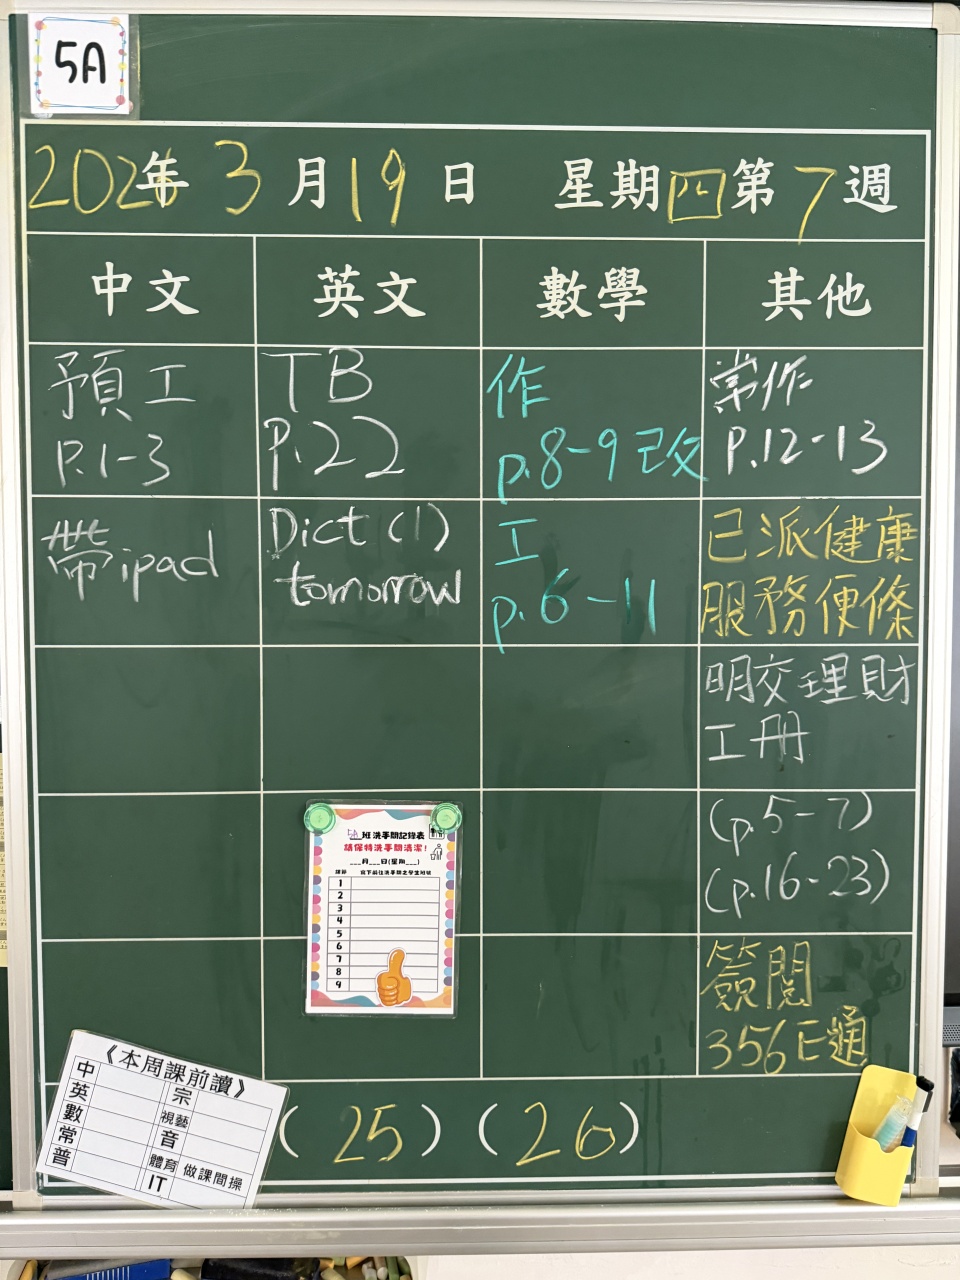 5A
2026年 3月19日 星期四第7週
中文 英文 數學 其他
預工
p.1-3
TB
p.22
作
p.8-9 改
常作
p.12-13
帶ipad
Dict (1)
tomorrow
工
p.6-11
已派健康
服務便條
明交理財
工册
(p.5-7)
(p.16-23)
簽閱
356E通
5A班洗手間記錄表
請保持洗手間清潔!
___月___日(星期___)
課節 當下前往洗手間之學生班號
1
2
3
4
5
6
7
8
9
《本周課前讀》
中 宗
英 視藝
數 音
常 體育 做課間操
普 IT
(25) (26)